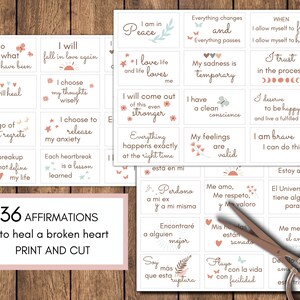 I am in
Peace
Everything changes
and
Everything passes
WHEN
I allow myself to
I allow myself to
what
have been
I will
fall in love again
I love life
and life
loves
me
My sadness is
temporary
I trust
in the process
heal
I choose
my thoughts
wisely
I will come out
of this even
stronger
I have
a clean
conscience
I deserve
to be happy
and live a fulfilled
go of
regrets
I choose to
release
my anxiety
Everything
happens exactly
at the right time
My feelings
are
valid
I am brave
I can do this
breakup
not define
life
Each heartbreak
is a lesson
learned
36 AFFIRMATIONS
to heal a broken heart
PRINT AND CUT
Estoy a
Perdono
a mi ex
y a mi misma
Me amo,
me respeto,
y me valoro
El Univers
tiene algo
para
Encontraré
a alguien
mejor
Mis
están
sanando
Soy
más que
esta
ruptura
Fluyo
con la vida
con
facilidad
Esta